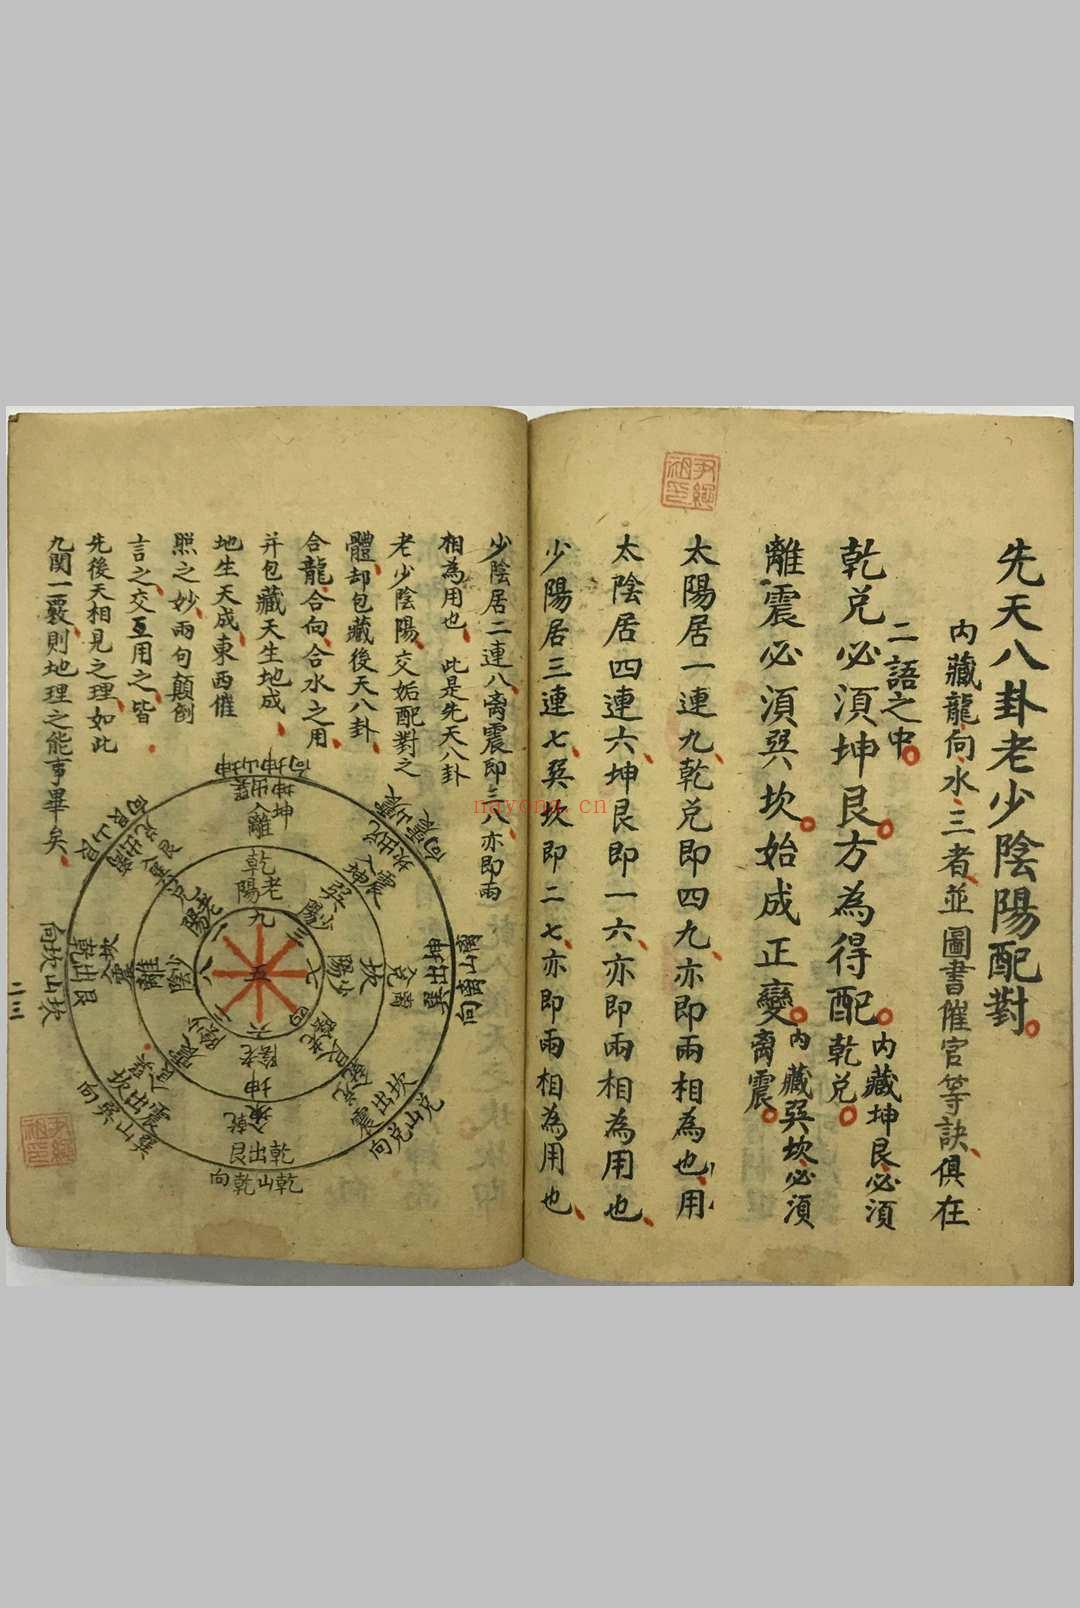 先天八卦老少陰陽配對
內藏龍向水三者並圖書催官等訣俱在
二語之中
乾兌必須坤艮方為得配
內藏坤艮必須
乾兌
離震必須巽坎始成正變
內藏巽坎必須
离震
太陽居一連九乾兌即四九亦即兩相為也用
太陰居四連六坤艮即一六亦即兩相為用也
少陽居三連七巽坎即二七亦即兩相為用也
少陰居二連八离震即三八亦即兩
相為用也 此是先天八卦
老少陰陽交姤配對之
體却包藏後天八卦
合龍合向合水之用
并包藏天生地成
地生天成東西催
照之妙兩句顛倒
言之交互用之皆
先後天相見之理如此
九関一竅則地理之能事畢矣
向坤山坤
坤出巽
入離
乾老陽
九
巽少陽
三
坎少陽
七
四
六
老陰
坤
入乾
艮出乾
向乾山乾
少陰
震
離少陰
八
五
兌老陽
坎出震
向兌山兌
巽出坤
向离山离
乾出艮
向坎山坎
震出坎
向巽山巽
向艮山艮
二三
nayona.cn